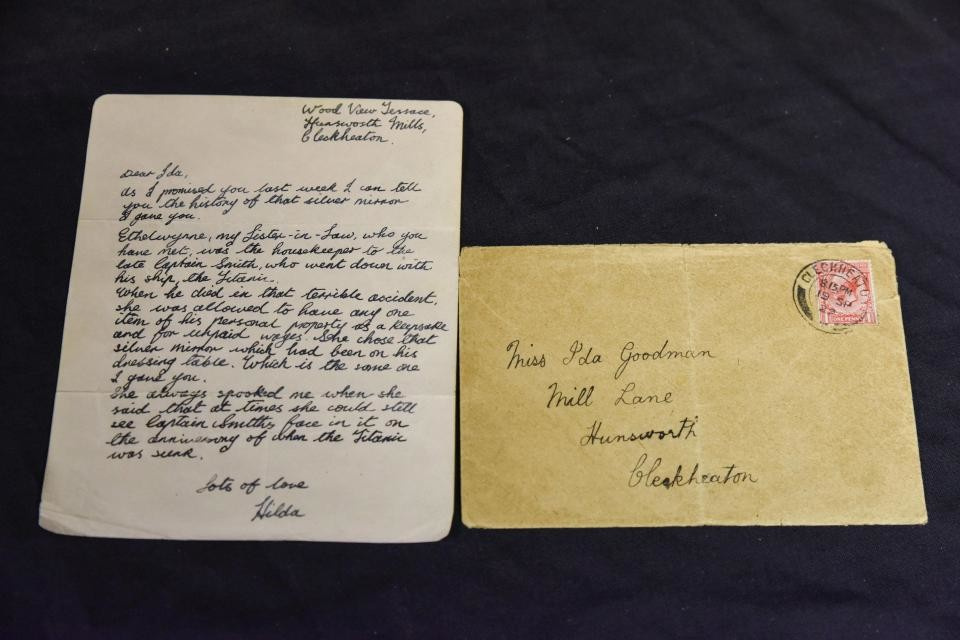 Wood View Terrace,
Hunsworth Mills,
Cleckheaton.
Dear Ida,
As I promised you last week I can tell
you the history of that silver mirror
I gave you.
Ethelwynne, my Sister-in-Law, who you
have met, was the housekeeper to the
late Captain Smith, who went down with
his ship, the Titanic.
When he died in that terrible accident,
she was allowed to have any one
item of his personal property as a keepsake
and for unpaid wages. She chose that
silver mirror which had been on his
dressing table. Which is the same one
I gave you.
She always spooked me when she
said that at times she could still
see Captain Smiths face in it on
the anniversary of when the Titanic
was sunk.
Lots of love
Hilda
CLECKHEATO
8.15PM
19
ONE PENNY
Miss Ida Goodman
Mill Lane
Hunsworth
Cleckheaton